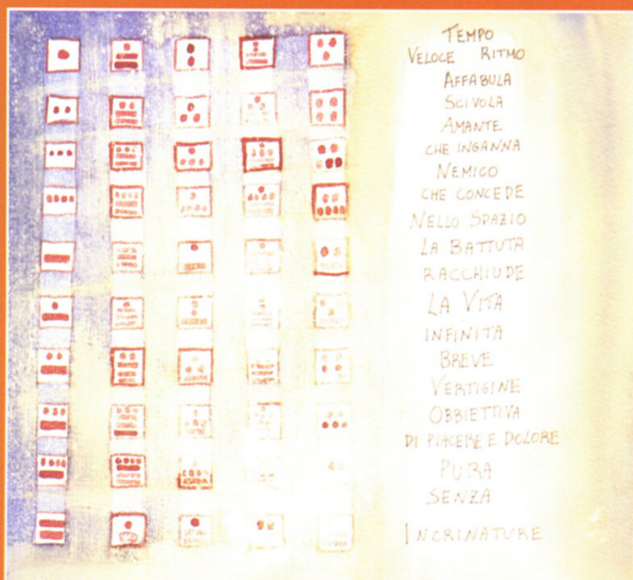 TEMPO
VELOCE RITMO
AFFABULA
SCIVOLA
AMANTE
CHE INGANNA
NEMICO
CHE CONCEDE
NELLO SPAZIO
LA BATTUTA
RACCHIUDE
LA VITA
INFINITA
BREVE
VERTIGINE
OBBIETTIVA
DI PIACERE E DOLORE
PURA
SENZA
INCRINATURE